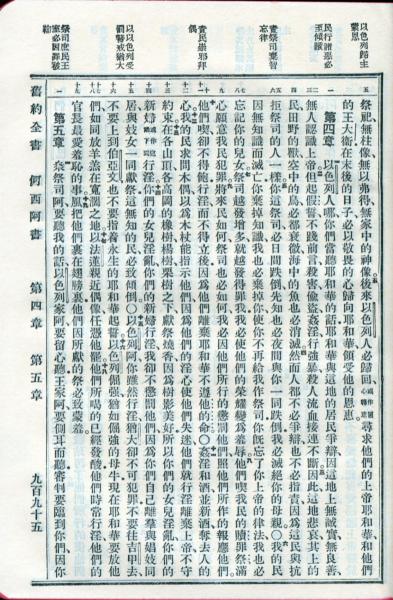 以色列歸主
蒙恩
民行諸惡必
至傾敗
責祭司棄智
忘律
責民崇邪拜
偶
以以色列受
罰警戒猶大
祭司庶民王
室必因罪被
祭祀無柱像無以弗得無家中的神像後來以色列人必歸回尋求他們的上帝耶和華和他們
的王大衛在末後的日子必以敬畏的心歸向耶和華領受他的恩惠
第四章 以色列人哪你們當聽耶和華的話耶和華與這地的居民爭辯因這地上無誠實無良善
無人認識上帝但起假誓不踐前言殺害偷盜姦淫行強暴殺人流血接連不斷因此這地悲哀其上的
民田野的獸空中的鳥必都衰微海中的魚也必消滅然而人都不必爭辯也不必指責因為這民與抗
拒祭司的人一樣你這祭司必日間跌倒先知也必夜間與你一同跌倒我必滅絕你的母親○我的民
因無知識而滅亡你棄掉知識我也必棄掉你使你不再給我作祭司你既忘了你上帝的律法我也必
忘記你的兒女祭司越發增多就越發得罪我我必使他們的榮耀變為羞辱他們喫我民的贖罪祭滿
心願意我民犯罪將來民如何祭司也必如何我必因他們所行的懲罰他們照他們所作的報應他們
他們喫卻不得飽行淫而不得立後因為他們離棄耶和華不遵他的命○姦淫和酒並新酒奪去人的
心我的民求問木偶以為木杖能指示他們因為他們的淫心使他們失迷他們就行淫離棄上帝不守
約束在各山頂各高岡的橡樹楊樹栗樹之下獻祭燒香因為樹影美好所以你們的女兒淫亂你們的
新婦行淫你們的女兒淫亂你們的新婦行淫我卻不懲罰他們因為你們自己離羣與娼妓同
居與妓女一同獻祭這無知的民必致傾倒○以色列阿你雖然行淫猶大卻不可犯罪不要往吉甲去
不要上到伯亞文也不要指着永生的耶和華起誓以色列倔強猶如倔強的母牛現在耶和華要放他
們如同放羊羔在寬濶之地以法蓮親近偶像任憑他罷他們所喝的已經發酸他們時常行淫他們的
官長最愛羞恥的事風把他們裹在翅膀裏他們因所獻的祭必致蒙羞
第五章 祭司阿要聽我的話以色列家阿要留心聽王家阿要側耳而聽審判要臨到你們因你
舊約全書 何西阿書 第四章 第五章 九百九十五